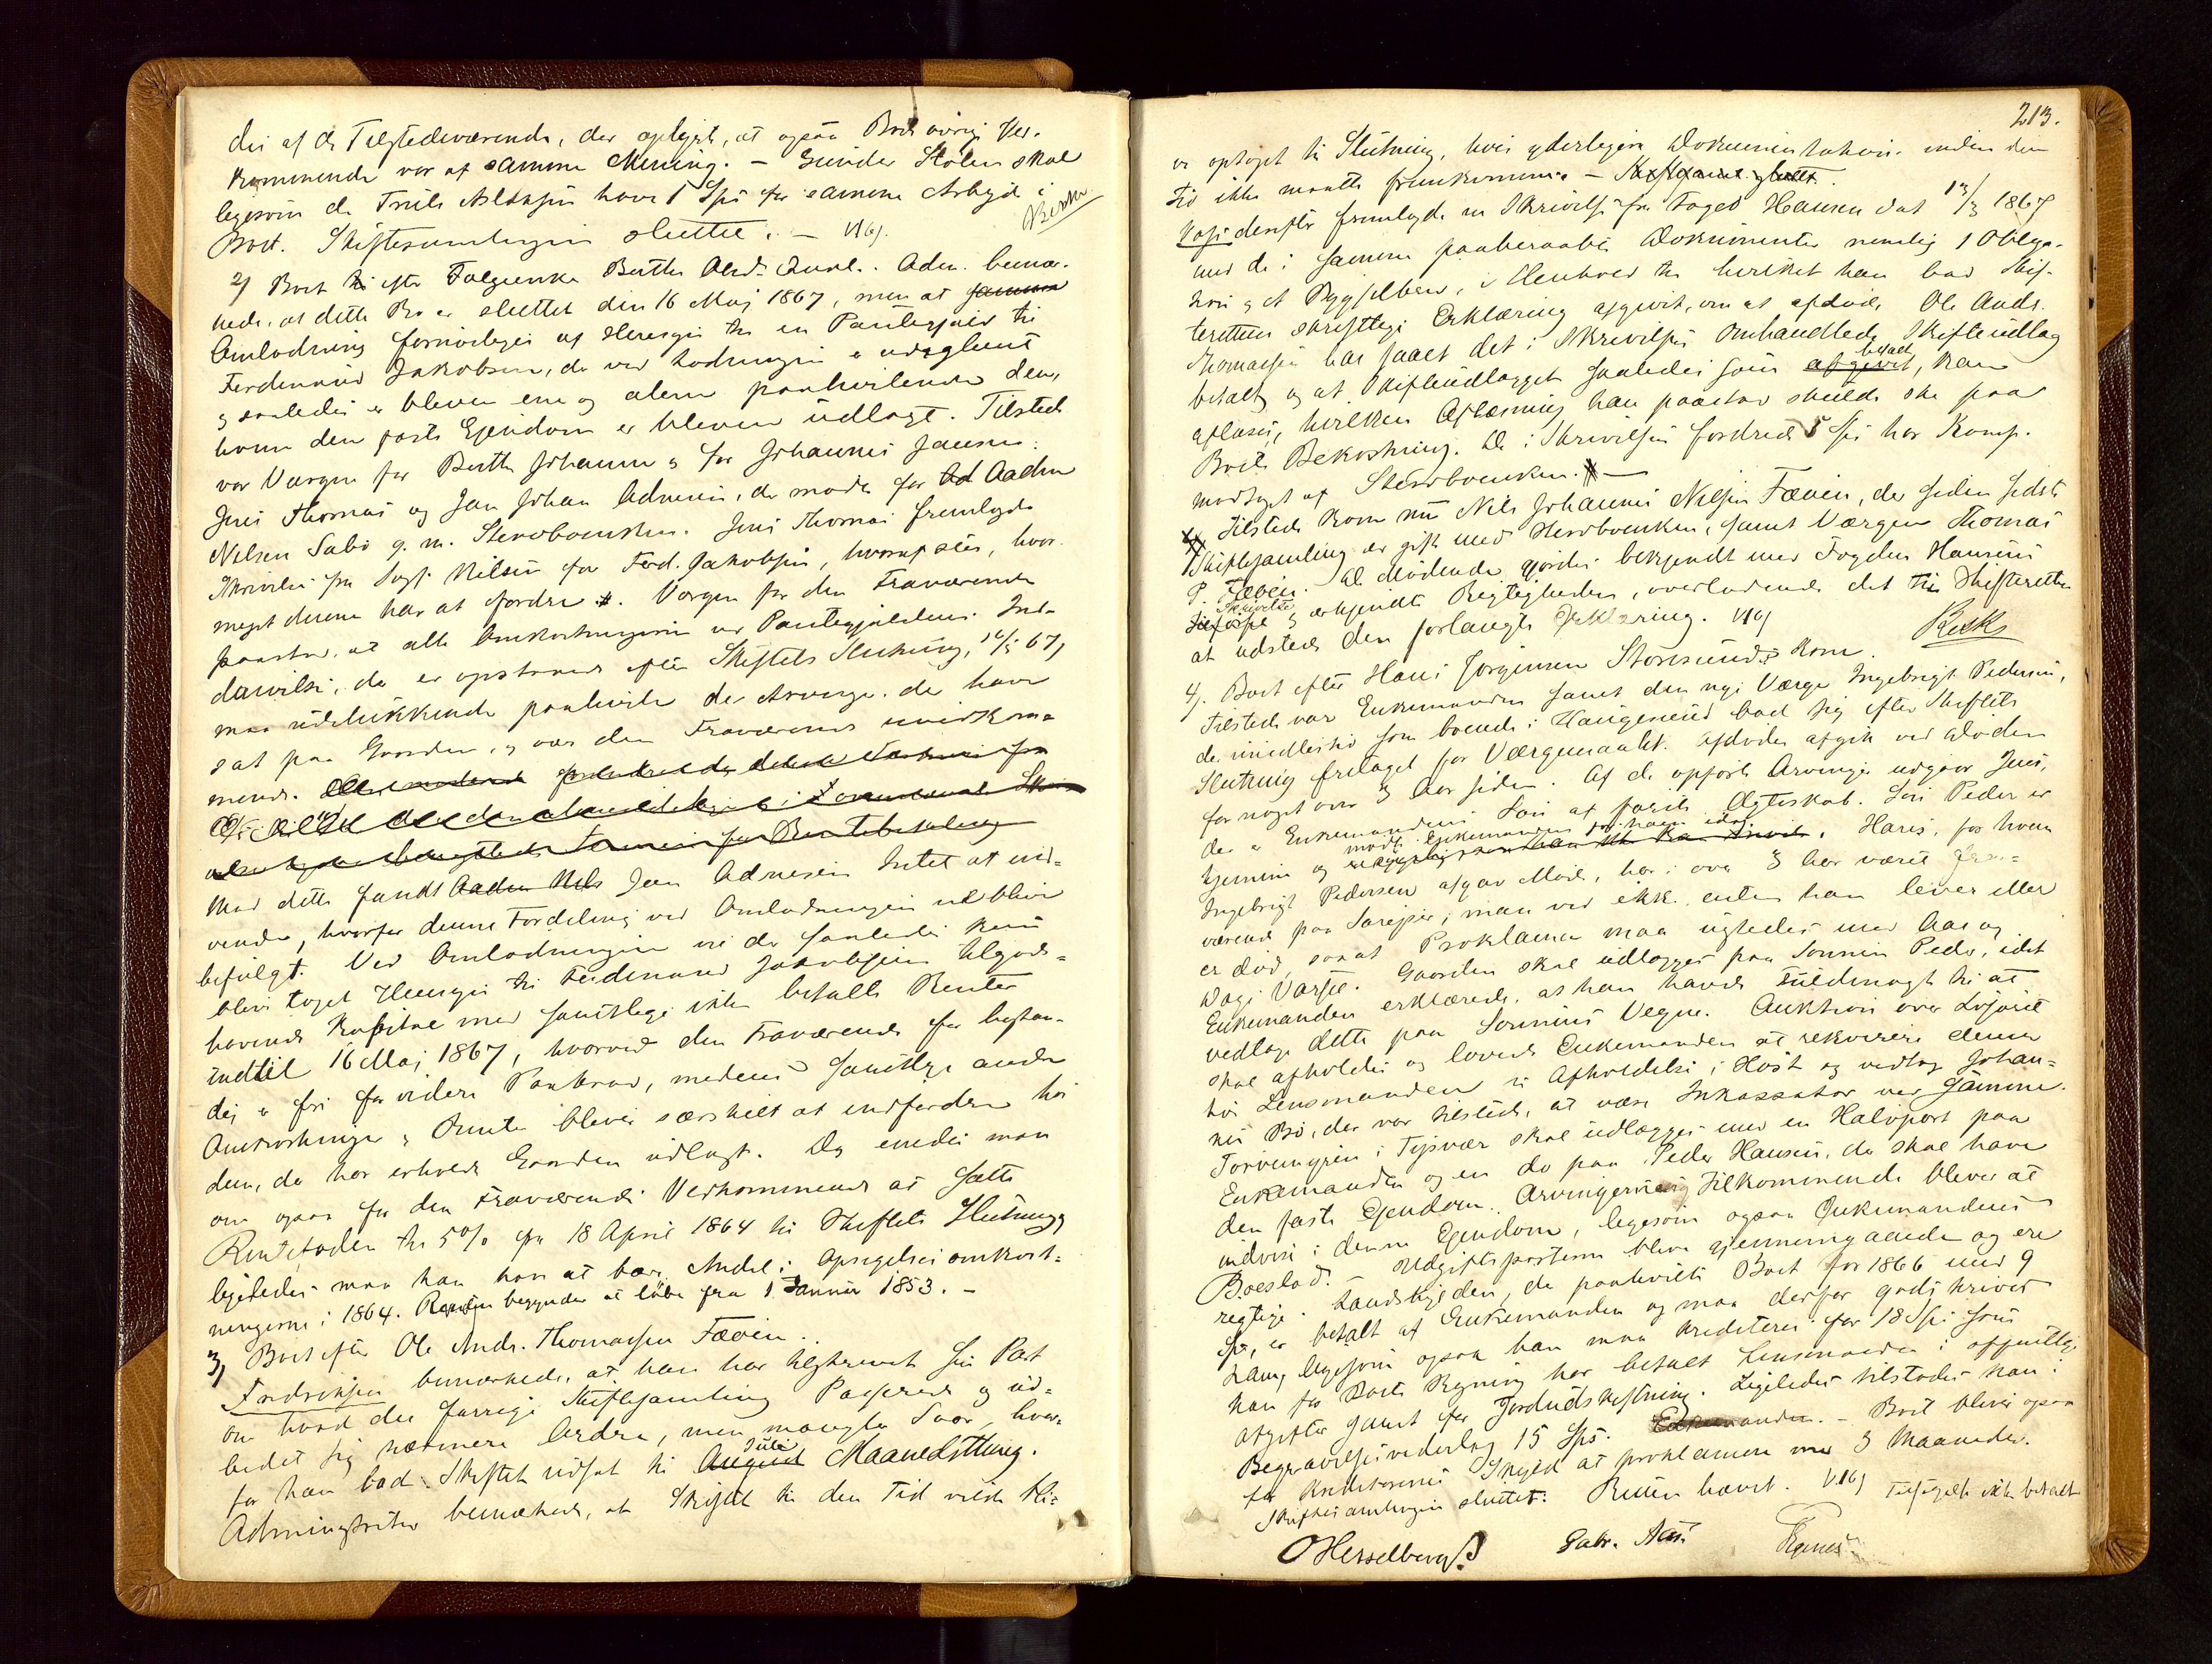 dei af de Tilstedeværende, der oplyste, at ogsaa Boets øvrige Ved-
kommende var af samme Mening. – Gunder Stølen skal
ligesom de Truls Aslaksen have 1 Spd for samme Arbeide i
Boet. Skiftesamlingen sluttet. –
2) Boet efter Folgeenke Berthe Olsd. Adm. bemær-
kede, at dette Bo er sluttet den 16 Maj 1867, men at samme
Omlodning fornødiges af Hensyn til en Pantegjeld til
Ferdinand Jakobsen, der ved Lodningen er udeglemt
og saaledes er bleven ene og alene paahvilende den,
hvem den faste Ejendom er bleven udlagt. Tilstede
var Værgen for Berthe Johanne og for Johannes Jansen:
Jens Thomas og Jan Johan Adnesen, der mødte for Ad Aadne
Nelsen Sabø g. m. Stervboenken. Jens Thomas fremlagde
Skrivelse fra Sagf. Nilsen for Ferd. Jakobsen, hvoraf sees, hvor
meget denne har at fordre. Værgen for den Fraværende
paastod, at alle Omkostningerne ved Pantegjældens Ind-
drivelse, der er opstaaede efter Skiftets Slutning, 16/5 67,
maa udelukkende paahvile de Arvinge, der have
sat paa Gaarden, og var den Fraværende uvedkom-
mende.
Mod dette fandt Aadne Nels Jan Adnesen Intet at ind-
vende, hvorfor denne Fordeling ved Omlodningen vil blive
befulgt. Ved Omlodningen vil der saaledes kun
blive taget Hensyn til Ferdinand Jakobsens tilgode-
havende Kapital med samtlige ikke betalte Renter
indtil 16 Maj 1867, hvorved den Fraværende for bestan-
dig er fri for videre Paakrav, medens samtlige andre
Omkostninger og Renter bliver særskilt at indfordre hos
dem, der har erholdt Gaarden udlagt. Dog enedes man
om ogsaa for den Fraværendes Vedkommende at sætte
Rentefoden til 5% fra 18 April 1864 til Skiftets Slutning,
ligeledes maa han have at bære Andel i Opsigelsesomkost-
ningerne i 1864. Renten begynder at løbe fra 1 Januar 1853. –
3) Boet efter Ole Andr. Thomassen Fæøen.
Fredriksen bemærkede, at han har tilskrevet sin Part
om hvad der forrige Skiftesamling Passerede og ud-
bedet sig nærmere Ordre, men mangler Svar, hvor-
for han bad Skiftet udsat til August Juli Maanedsthing.
Administrator bemærkede, at Skiftet til den Tid vilde bli-
213.
ve optaget til Slutning, hvis yderligere Dokumentation inden den
Tid ikke maatte fremkomme –
derefter fremlagde en Skrivelse fra Foged Hansen dat 13/3 1867
med de i samme paaberaabte Dokumenter nemlig 1 Obliga-
tion og et Byggselbrev, i Henhold til hvilket han bad Skif-
teretten skriftlige Erklæring afgivet, om at afdøde Ole Andr.
Thomassen har faaet det i Skrivelsen Omhandlede Skifteudlæg
betalt og at Skifteudlægget saaledes som afgjort betalt, kan
aflæses, hvilken Aflæsning han paastod skulde ske paa
Boets Bekostning. De i Skrivelsen fordrede 5 Spd har Komp.
modtaget af Stervboenken. –
Tilstede kom nu Nils Johannes Nelsen Fæøen, der siden sidste
Skiftesamling er gift med Stervboenken, samt Værgen Thomas
P. Fæøen. De Mødende gjordes bekjendt med Fogden Hansens
Skrivelse og erkjendte Rigtigheden, overladende det til Skifteretten
at udstede den forlangte Erklæring.
4). Boet efter Hans Jørgensen Storesunds Kone.
Tilstede var Enkemanden samt den nye Værge Ingebrigt Pedersen,
der imidlertid som boende i Haugesund bad sig efter Skiftets
Slutning fritaget for Værgemaalet. Afdøde afgik ved Døden
for noget over 3 Aar siden. Af de opførte Arvinge udgaar Jens,
der er Enkemandens Søn af første Ægteskab. Søn Peder er
hjemme og møder Enkemanden for ham idag. Hans, for hvem
Ingebrigt Pedersen afgav Møde, har i over 3 Aar været fra-
værende paa Søreiser, man ved ikke, enten han lever eller
er død, saaat Proklama maa udstedes med Aar og
Dags Varsel. Gaarden skal udlægges paa Sønnen Peder, idet
Enkemanden erklærede, at han havde Fuldmagt til at
vedtage dette paa Sønnens Vegne. Auktion over Løsøret
skal afholdes og lovede Enkemanden at rekvirere denne
hos Lensmanden til Afholdelse i Høst og vedtog Johan-
nes Bø, der var tilstede, at være Inkassator ved samme.
Torvemyren i Tysvær skal udlægges med en Halvpart paa
Enkemanden og en do paa Peder Hansen, der skal have
den faste Ejendom. Arvingernes Tilkommende bliver at
indvise i denne Ejendom, ligesom ogsaa Enkemandens
Boeslod. – Udgiftsposterne bleve gjennemgaaede og ere
rigtige. Landskylden, der paahvilte Boet for 1866 med 9
Spd, er betalt af Enkemanden og maa derfor godskrives
ham, ligesom ogsaa han maa krediteres for 18 Spd som
han for Boets Regning har betalt Lensmanden i offentlige
Afgifter samt for Jordudskiftning. Ligeledes tilstodes han i
Begravelsesvederlag 15 Spd. Enkemanden. – Boet bliver ogsaa
for Kreditorernes Skyld at proklamere med 3 Maaneder.
Skiftesamlingen sluttet. Retten hævet.
OHesselberg